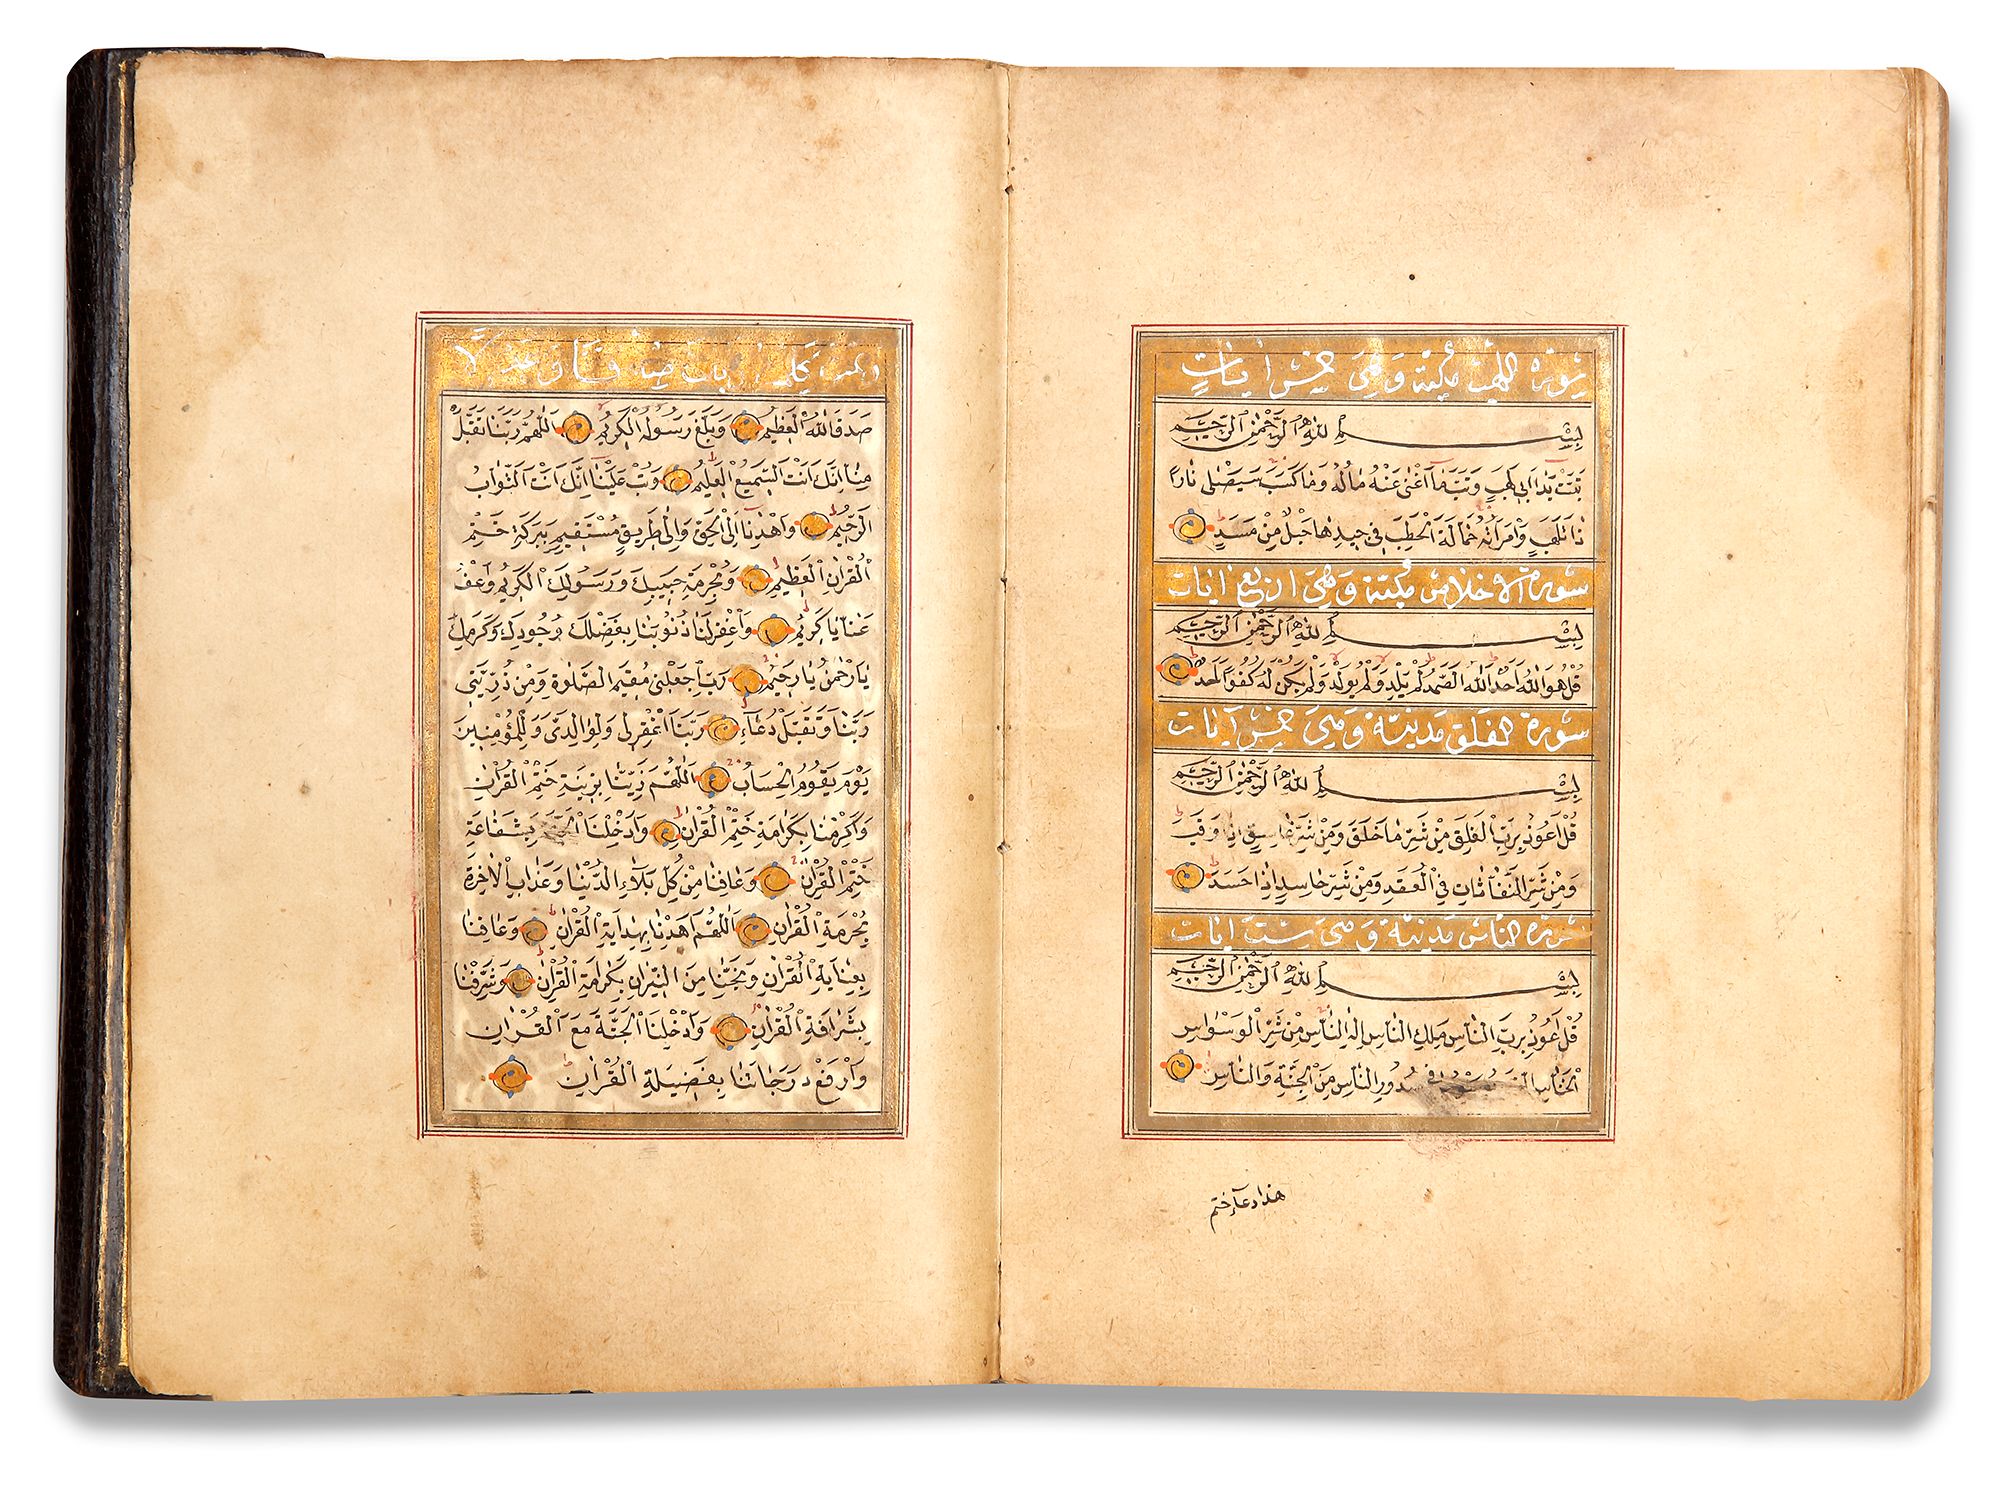 سورة اللهب مكية وهي خمس ايات
بِسْمِ اللّٰهِ الرَّحْمٰنِ الرَّحِيمِ
تَبَّتْ يَدَا اَبِي لَهَبٍ وَتَبَّ مَا اَغْنٰى عَنْهُ مَالُهُ وَمَا كَسَبَ سَيَصْلٰى نَارًا
ذَاتَ لَهَبٍ وَامْرَأَتُهُ حَمَّالَةَ الْحَطَبِ فِي جِيدِهَا حَبْلٌ مِنْ مَسَدٍ
سورة الاخلاص مكية وهي اربع ايات
بِسْمِ اللّٰهِ الرَّحْمٰنِ الرَّحِيمِ
قُلْ هُوَ اللّٰهُ اَحَدٌ اللّٰهُ الصَّمَدُ لَمْ يَلِدْ وَلَمْ يُولَدْ وَلَمْ يَكُنْ لَهُ كُفُوًا اَحَدٌ
سورة الفلق مدنية وهي خمس آيات
بِسْمِ اللّٰهِ الرَّحْمٰنِ الرَّحِيمِ
قُلْ اَعُوذُ بِرَبِّ الْفَلَقِ مِنْ شَرِّ مَا خَلَقَ وَمِنْ شَرِّ غَاسِقٍ اِذَا وَقَبَ
وَمِنْ شَرِّ النَّفَّاثَاتِ فِي الْعُقَدِ وَمِنْ شَرِّ حَاسِدٍ اِذَا حَسَدَ
سورة الناس مدنية وهي ست ايات
بِسْمِ اللّٰهِ الرَّحْمٰنِ الرَّحِيمِ
قُلْ اَعُوذُ بِرَبِّ النَّاسِ مَلِكِ النَّاسِ اِلٰهِ النَّاسِ مِنْ شَرِّ الْوَسْوَاسِ
الْخَنَّاسِ الَّذِي يُوَسْوِسُ فِي صُدُورِ النَّاسِ مِنَ الْجِنَّةِ وَالنَّاسِ
هذا دعآء ختم
كلمة ربك صدقا وعدلا
صَدَقَ اللّٰهُ الْعَظِيمُ وَبَلَّغَ رَسُولُهُ الْكَرِيمُ اَللّٰهُمَّ رَبَّنَا تَقَبَّلْ
مِنَّا اِنَّكَ اَنْتَ السَّمِيعُ الْعَلِيمُ وَتُبْ عَلَيْنَا اِنَّكَ اَنْتَ التَّوَّابُ
الرَّحِيمُ وَاهْدِنَا اِلَى الْحَقِّ وَاِلٰى طَرِيقٍ مُسْتَقِيمٍ بِبَرَكَةِ خَتْمِ
الْقُرْاٰنِ الْعَظِيمِ وَبِحُرْمَةِ حَبِيبِكَ وَرَسُولِكَ الْكَرِيمِ وَاعْفُ
عَنَّا يَا كَرِيمُ وَاغْفِرْ لَنَا ذُنُوبَنَا بِفَضْلِكَ وَجُودِكَ وَكَرَمِكَ
يَا رَحْمٰنُ يَا رَحِيمُ رَبِّ اجْعَلْنِي مُقِيمَ الصَّلٰوةِ وَمِنْ ذُرِّيَّتِي
رَبَّنَا وَتَقَبَّلْ دُعَآءِ رَبَّنَا اغْفِرْ لِي وَلِوَالِدَيَّ وَلِلْمُؤْمِنِينَ
يَوْمَ يَقُومُ الْحِسَابُ اَللّٰهُمَّ زَيِّنَّا بِزِينَةِ خَتْمِ الْقُرْاٰنِ
وَاَكْرِمْنَا بِكَرَامَةِ خَتْمِ الْقُرْاٰنِ وَاَدْخِلْنَا الْجَنَّةَ بِشَفَاعَةِ
خَتْمِ الْقُرْاٰنِ وَعَافِنَا مِنْ كُلِّ بَلَآءِ الدُّنْيَا وَعَذَابِ الْاٰخِرَةِ
بِحُرْمَةِ الْقُرْاٰنِ اَللّٰهُمَّ اهْدِنَا بِهِدَايَةِ الْقُرْاٰنِ وَعَافِنَا
بِعِنَايَةِ الْقُرْاٰنِ وَنَجِّنَا مِنَ النِّيرَانِ بِكَرَامَةِ الْقُرْاٰنِ وَشَرِّفْنَا
بِشَرَافَةِ الْقُرْاٰنِ وَاَدْخِلْنَا الْجَنَّةَ مَعَ الْقُرْاٰنِ
وَارْفَعْ دَرَجَاتَنَا بِفَضِيلَةِ الْقُرْاٰنِ